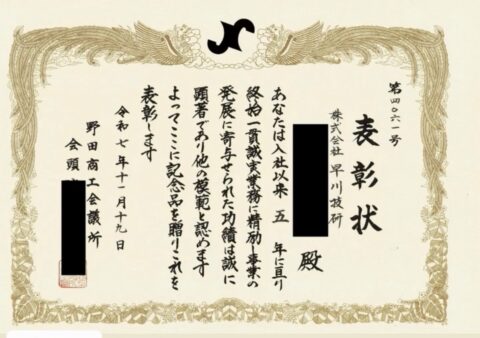 第四〇六一号
表彰状
株式会社 早川技研
殿
あなたは入社以来 五 年に亘り
終始一貫誠実業務に精励し事業の
発展に寄与せられた功績は誠に
顕著であり他の模範と認めます
よってここに記念品を贈りこれを
表彰します
令和七年十一月十九日
野田商工会議所
会頭